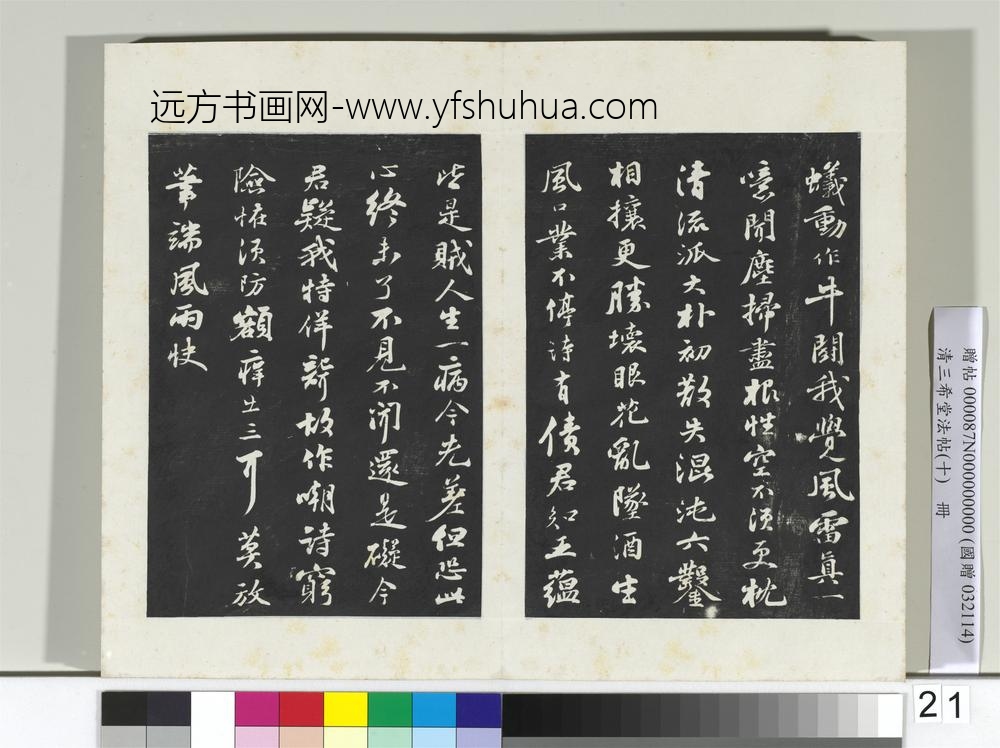 远方书画网-www.yfshuhua.com
蟻動作牛鬪我覺風雷真一
噫聞塵掃盡根性空不須更枕
清流派大朴初散失混沌六鑿
相攘更勝壞眼花亂墜酒生
風口業不停詩有債君知五蘊
皆是賊人生一病今先差但恐此
心終未了不見不聞還是礙今
君疑我特佯聾故作嘲詩窮
險怪須防額癢出三耳莫放
筆端風雨快
贈帖 000087N000000000 (國贈 032114)
清三希堂法帖(十) 冊
21